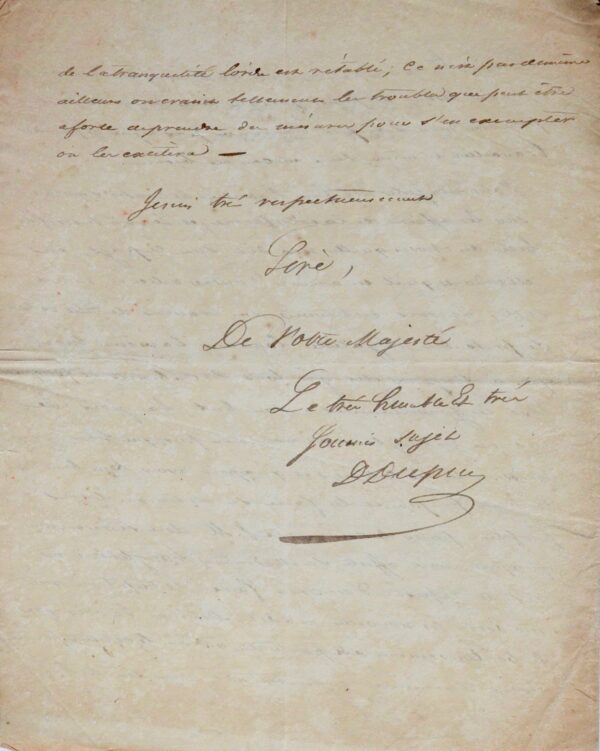 de la tranquilité l'orde est rétabli; Ce n'est pas de même
ailleurs on craint tellement les troubles que peut être
a force de prendre des mésures pour s'en exempter
on les excitera —
Je suis tré respectueusement
Sirè,
De Votre Majesté
Le tré humble Et tré
Soumis sujet
D Dupuy